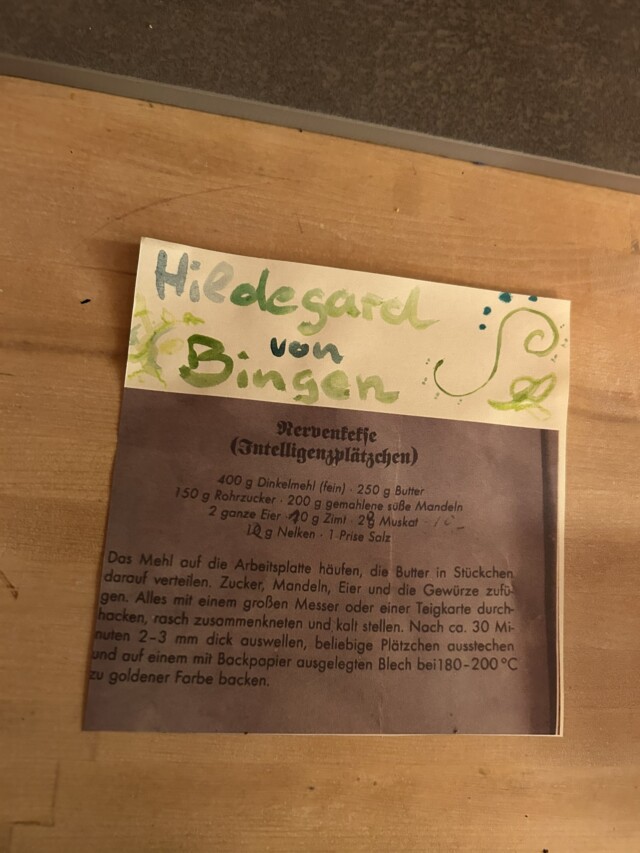 Hildegard
von
Bingen
Nervenkekse
(Intelligenzplätzchen)
400 g Dinkelmehl (fein) · 250 g Butter
150 g Rohrzucker · 200 g gemahlene süße Mandeln
2 ganze Eier · g Zimt · Muskat
g Nelken · 1 Prise Salz
Das Mehl auf die Arbeitsplatte häufen, die Butter in Stückchen
darauf verteilen. Zucker, Mandeln, Eier und die Gewürze zufü-
gen. Alles mit einem großen Messer oder einer Teigkarte durch-
hacken, rasch zusammenkneten und kalt stellen. Nach ca. 30 Mi-
nuten 2–3 mm dick auswellen, beliebige Plätzchen ausstechen
und auf einem mit Backpapier ausgelegten Blech bei 180–200 °C
zu goldener Farbe backen.